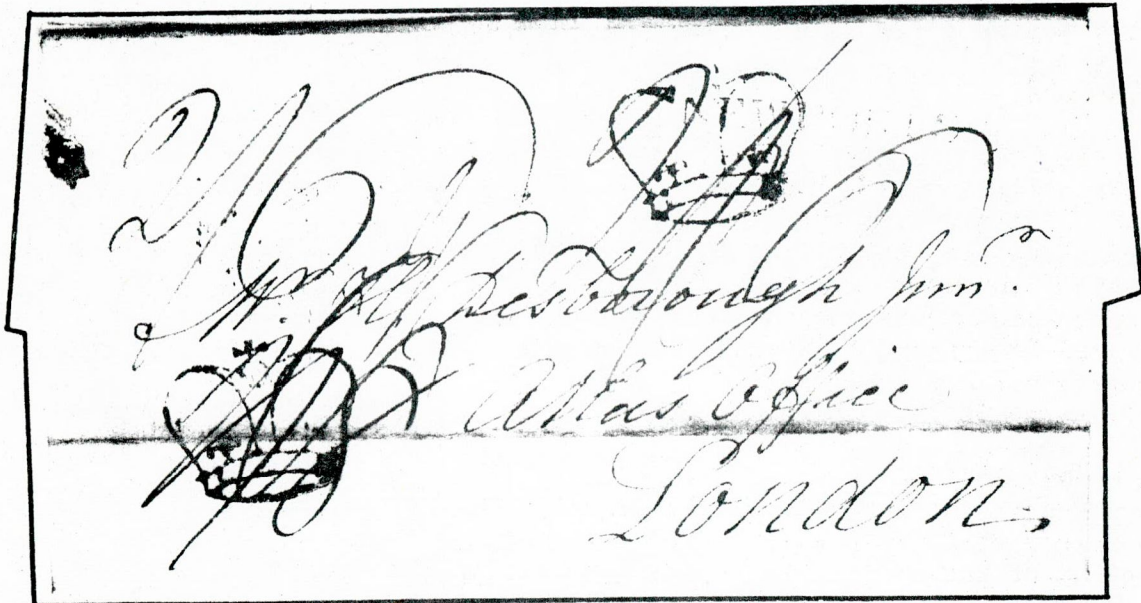 Mr. H. Desborough Junr.
Atlas Office
London